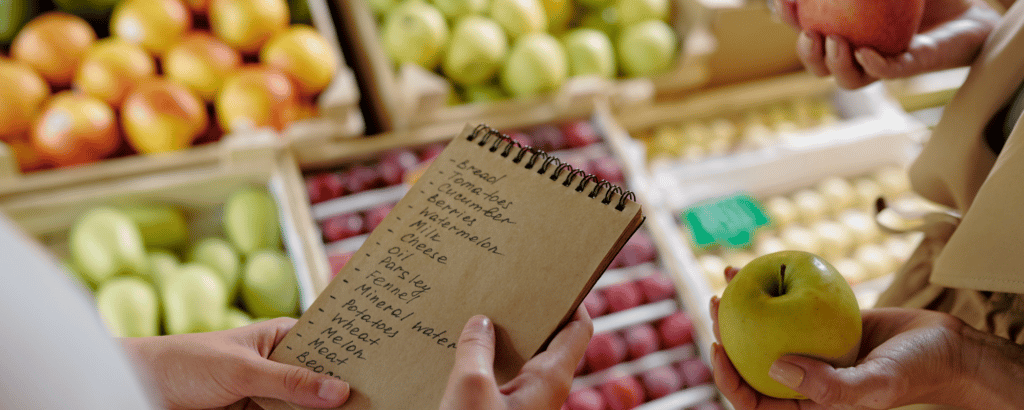 - Bread
- Tomatoes
- Cucumber
- Berries
- Watermelon
- Milk
- Cheese
- Oil
- Parsley
- Fennel
- Mineral water
- Potatoes
- Wheat
- Melon
- Meat